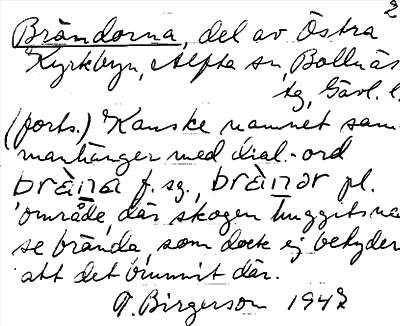 2
Brändorna, del av Östra
Kyrkbyn, Alfta sn, Bollnäs
tg, Gävl. l.
(forts.) Kanske namnet sam-
manhänger med dial.-ord
brä̀na f. sg., brä̀nər pl.
'område, där skogen huggits ne
se brända, som dock ej betyder
att det brunnit där.
T. Birgerson 1947